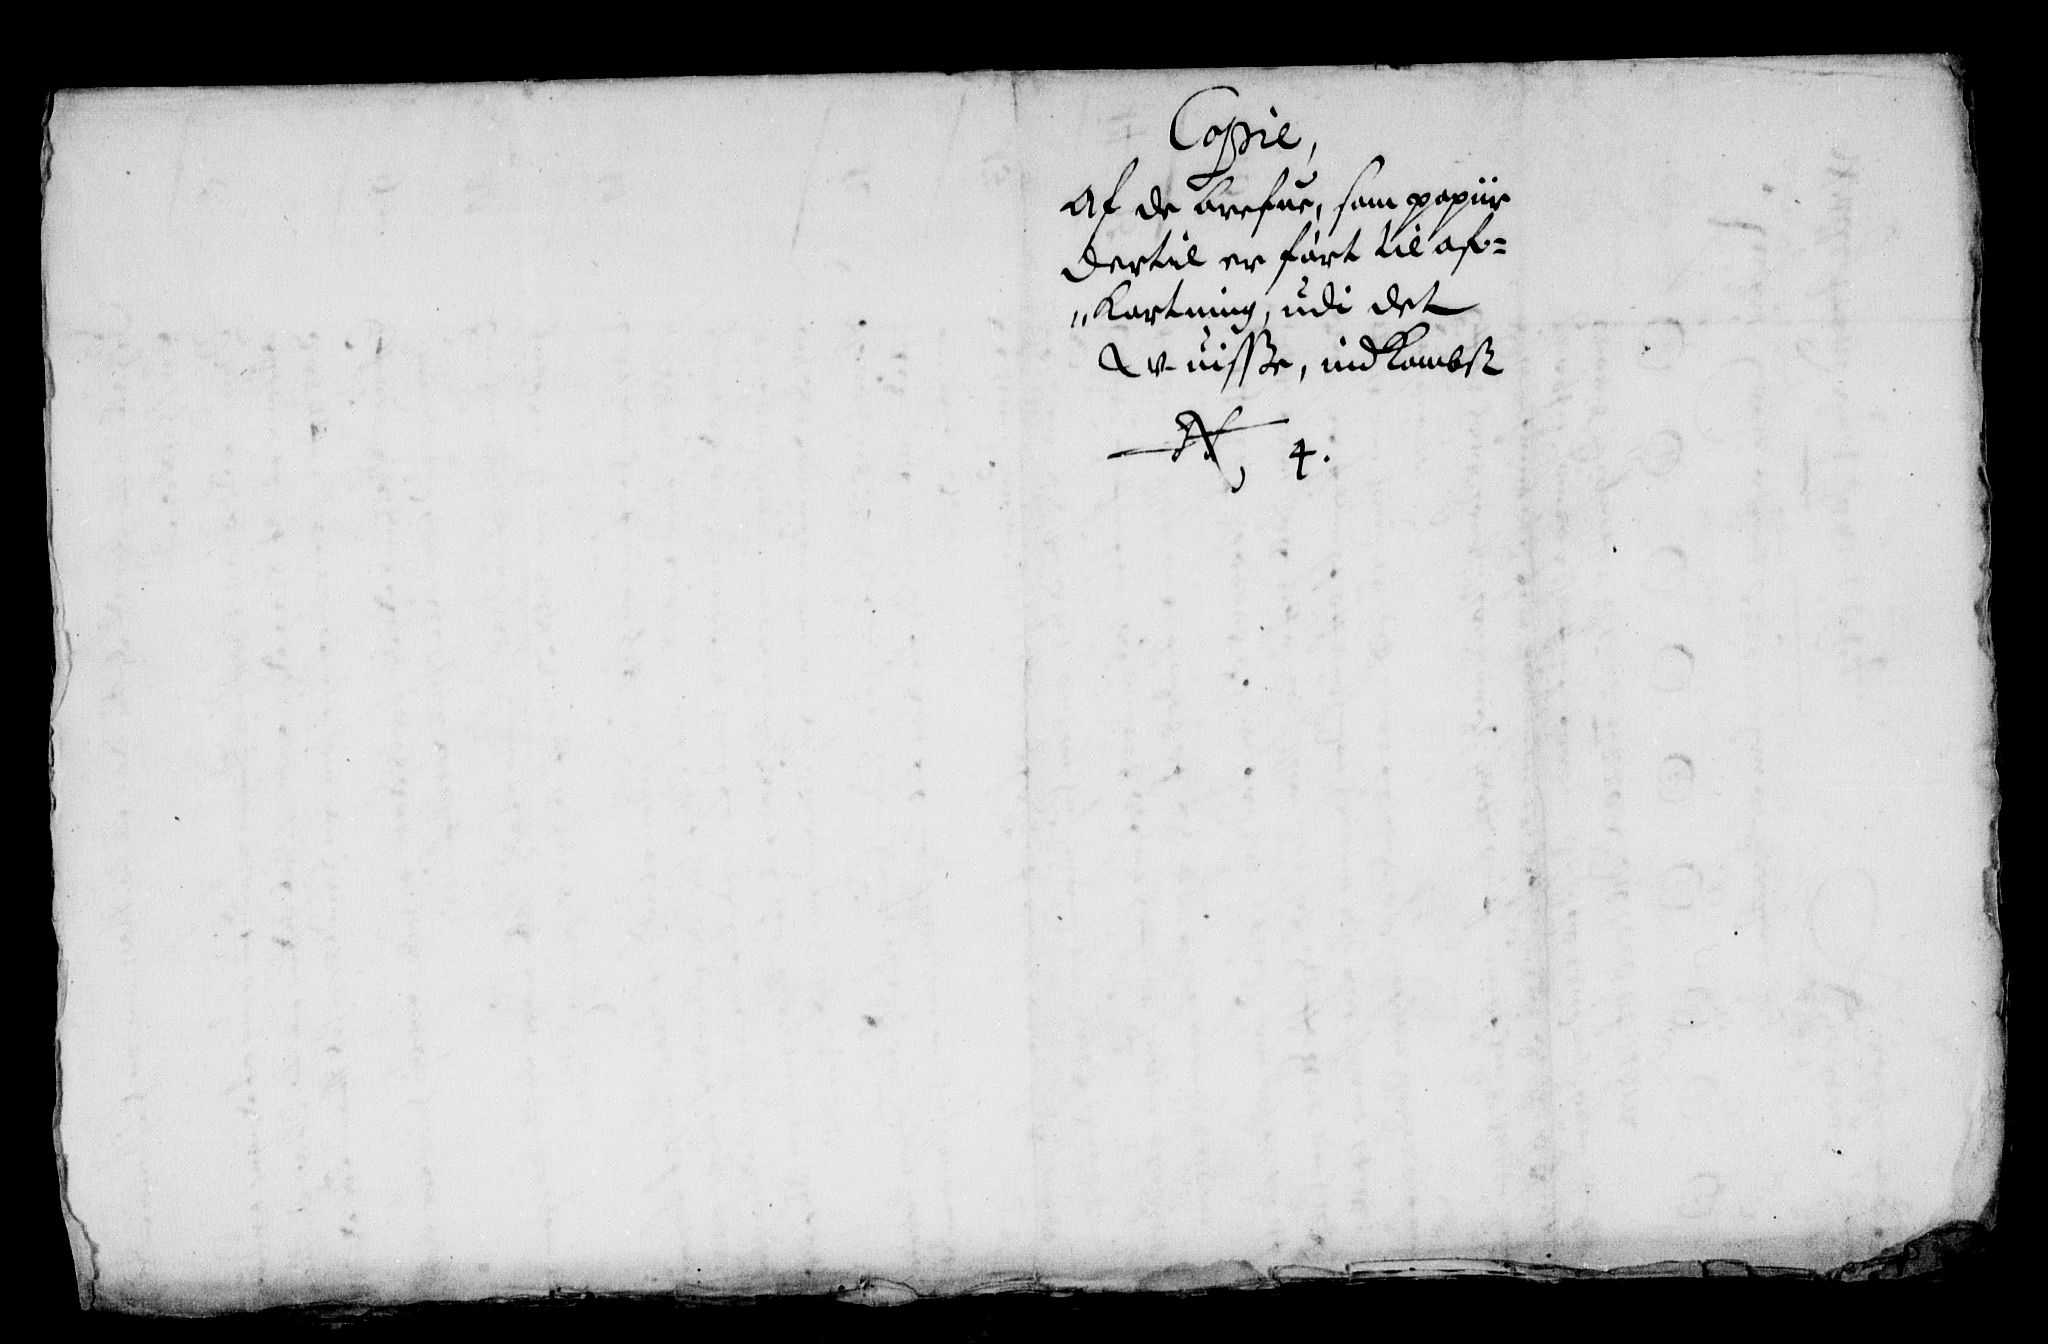 Copie,
Af de brefue, som papiir
dertil er ført til af-
"kortning, udi det
uisße, indkombst
N 4.